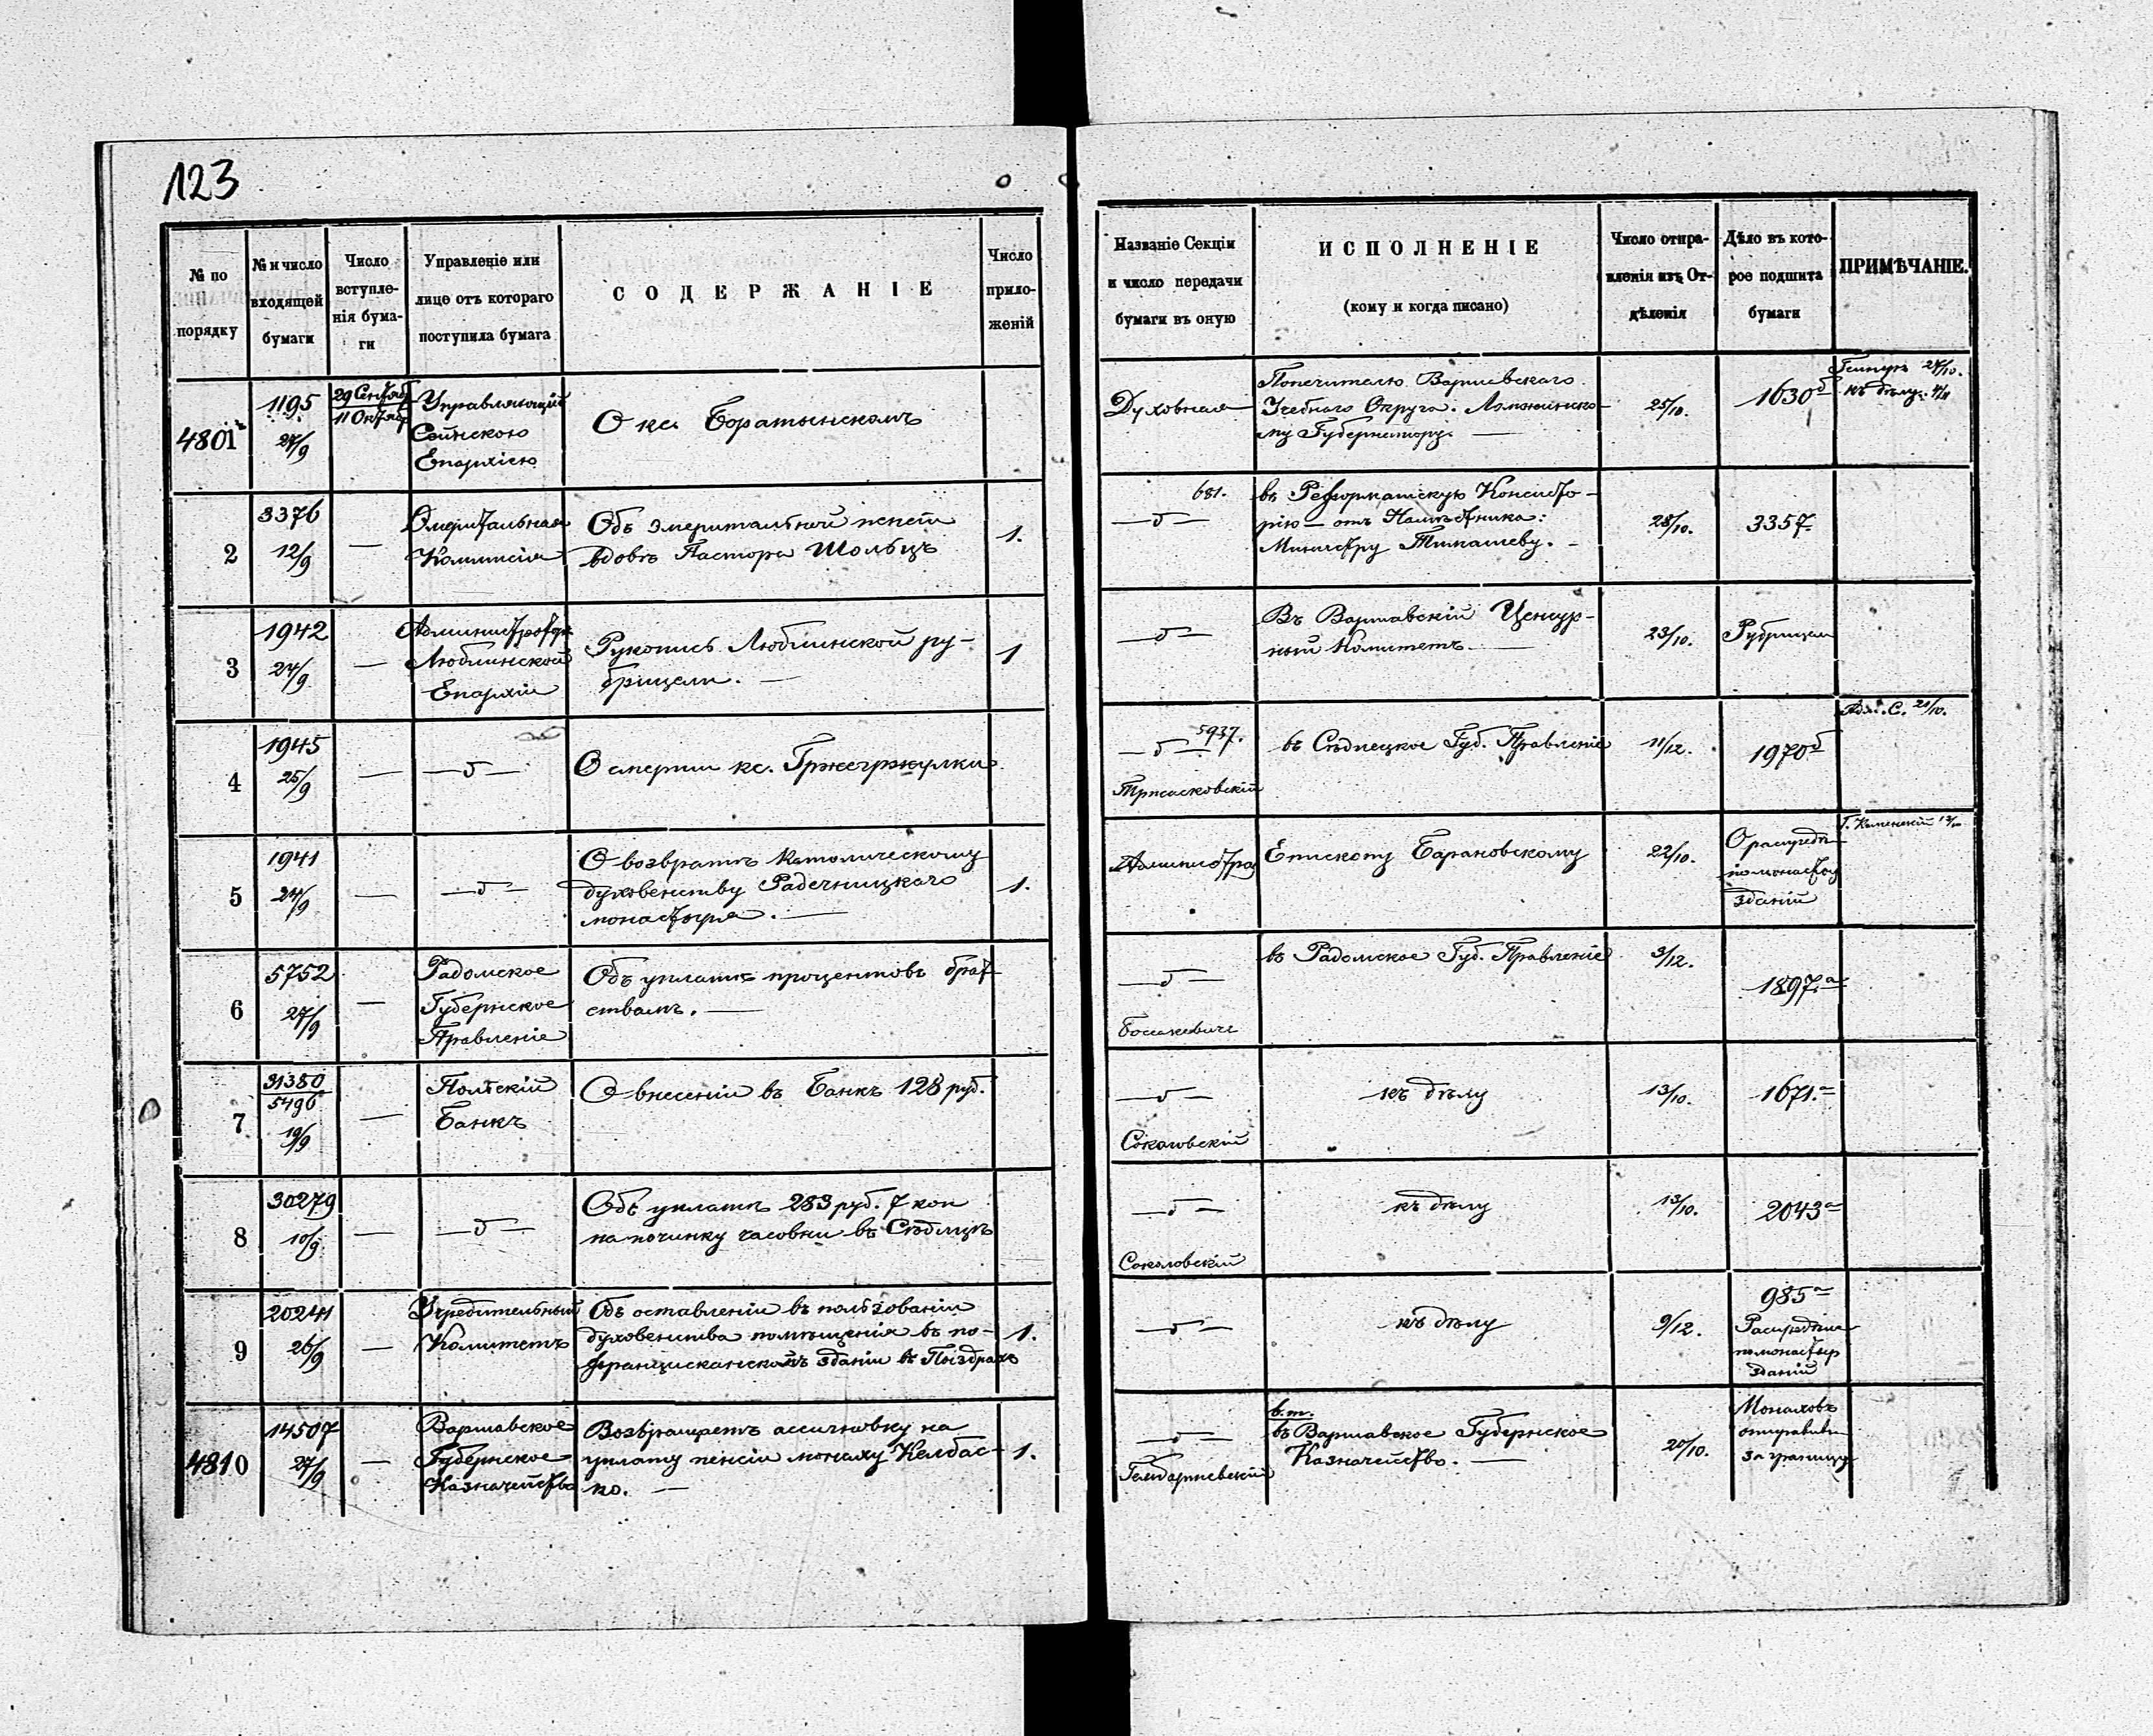 123
№ по порядку
№ и число входящей бумаги
Число вступле-
нія бума-
ги
Управленіе или
лице отъ котораго
поступила бумага
СОДЕРЖАНІЕ
Число
прило-
женій
Названіе Секціи
и число передачи
бумаги въ оную
ИСПОЛНЕНІЕ
(кому и когда писано)
Число отпра-
вленія изъ От-
дѣленія
Дѣло въ кото-
рое подшита
бумаги
ПРИМѢЧАНІЕ.
4801
1195
27/9
29 Сентяб
11 Октяб
Управляющій
Сейнскою
Епархіею
О кс. Боратынскомъ
Духовная
Попечителю Варшавскаго
Учебнаго Округа. Ломжинско-
му Губернатору. —
25/10.
1630 б
27/10.
къ дѣлу.
2
3376
12/9
—
Эмеритальная
Коммисія
Объ эмеритальной пенсіи
вдовѣ Пастора Шольцъ
1.
681.
— б —
въ Реформатскую Консисто-
рію — отъ Намѣстника:
Министру Тимашеву. —
28/10.
3357.
3
1942
24/9
—
Администраторъ
Люблинской
Епархіи
Рукопись Люблинской ру-
брицели. —
1
— б —
Въ Варшавскій Ценсур-
ный Комитетъ. —
23/10.
Рубрицели
4
1945
25/9
—
— б —
О смерти кс. Гржегржулки
5937.
— б —
Тржасковскій
въ Сѣдлецкое Губ. Правленіе
11/12.
1970 б
С. 21/10.
5
1941
24/9
—
— б —
О возвратѣ Католическому
духовенству Радечницкаго
монастыря. —
1.
Администрац
Епископу Барановскому
22/10.
О распредѣ
помонастыр
зданій
Г. Каменскій 13/10
6
5752
27/9
—
Радомское
Губернское
Правленіе
Объ уплатѣ процентовъ брат-
ствамъ. —
— б —
въ Радомское Губ. Правленіе
3/12.
1897. а
7
31380
5496
19/9
—
Польскій
Банкъ
О внесеніи въ Банкъ 128 руб.
— б —
Соколовскій
къ дѣлу
13/10.
1671. а
8
30279
10/9
—
— б —
Объ уплатѣ 283 руб. 7 коп
на починку часовни въ Сѣдлцѣ
— б —
Соколовскій
къ дѣлу
13/10.
2043 а
9
20241
26/9
—
Учредительный
Комитетъ
Объ оставленіи въ пользованіи
духовенства помѣщенія въ по-
францисканскомъ зданіи въ Пыздрахъ
1.
— б —
къ дѣлу
9/12.
985 а
Распредѣле
помонастыр
зданій
4810
14507
27/9
—
Варшавское
Губернское
Казначейство
Возвращаетъ ассигновку на
уплату пенсіи монаху Келбас-
ко. —
1.
— б —
в.т.
въ Варшавское Губернское
Казначейство. —
20/10.
Монаховъ
отправивш
за границу